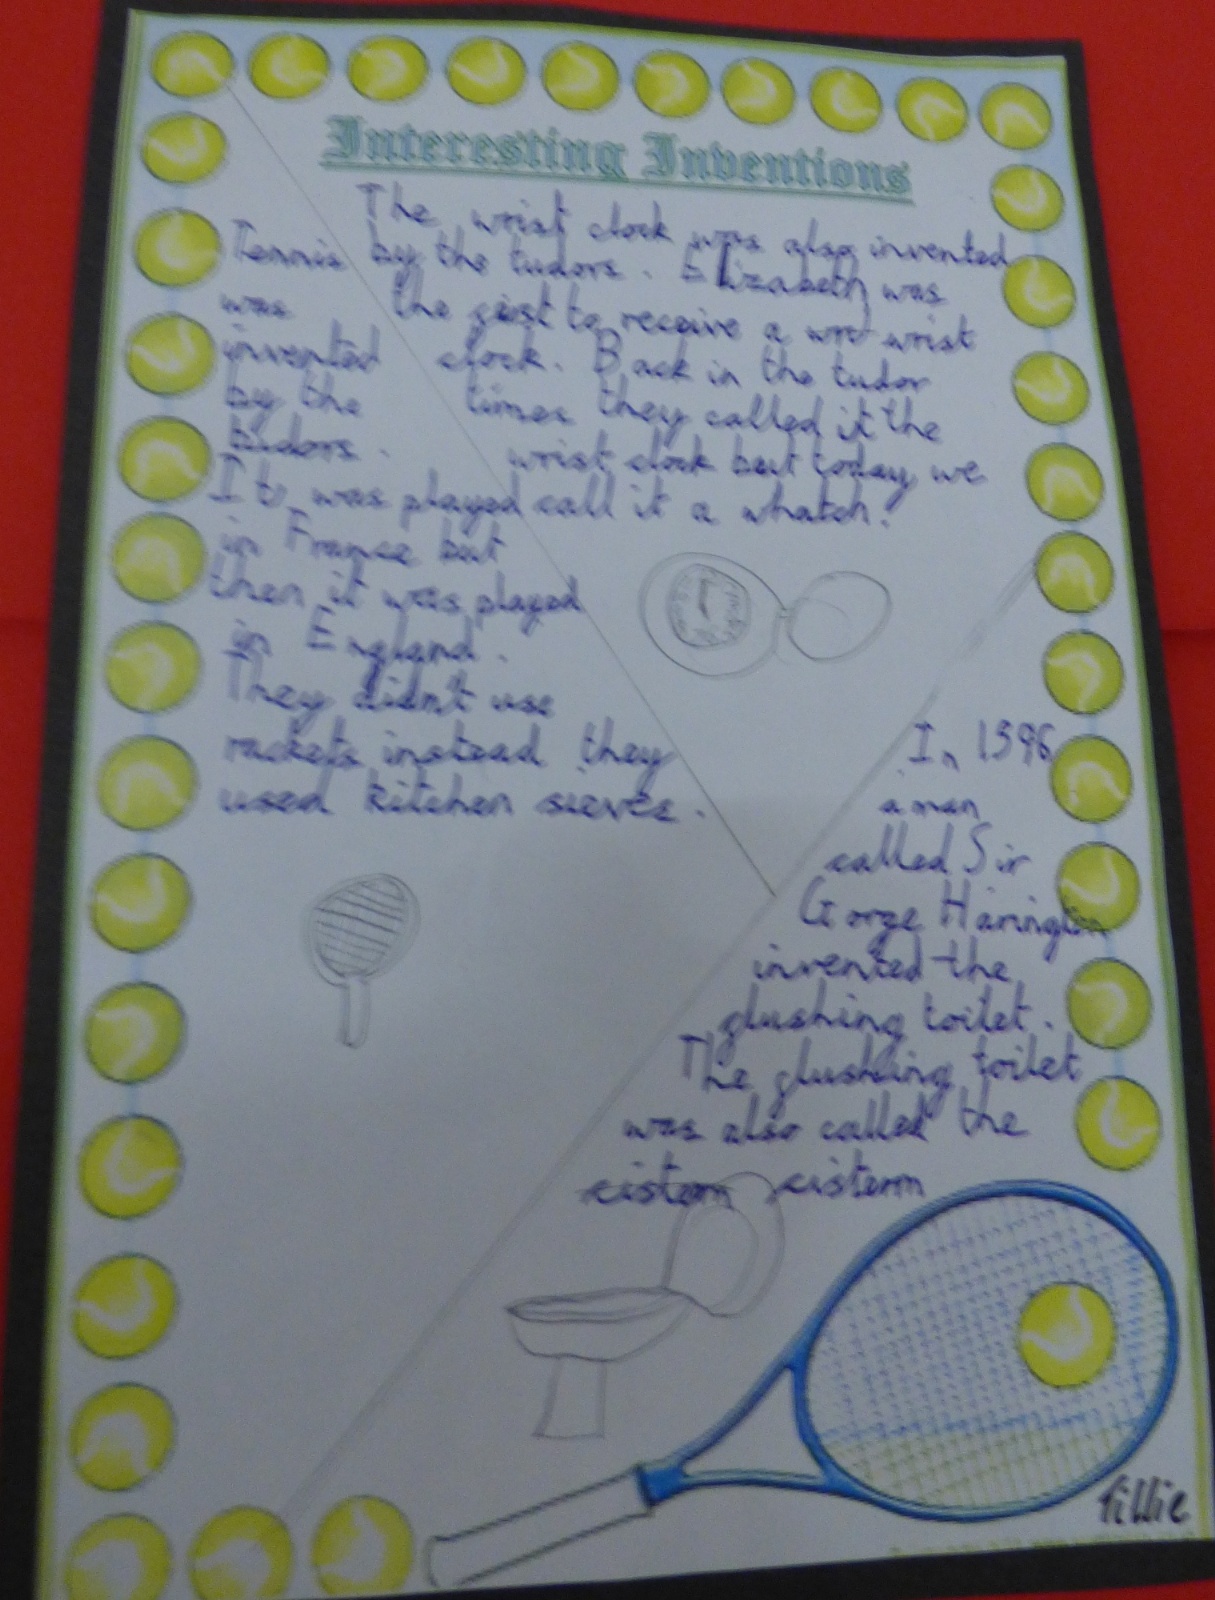 Interesting Inventions
Tennis
was
invented
by the
tudors.
It was played
in France but
then it was played
in England.
They didn't use
rackets instead they
used kitchen sieves.
The wrist clock was also invented
by the tudors. Elizabeth was
the first to receive a wrist
clock. Back in the tudor
times they called it the
wrist clock but today we
call it a whatch.
In 1596
a man
called Sir
Gorge Harington
invented the
flushing toilet.
The flushing toilet
was also called the
cistern cistern
Tillie